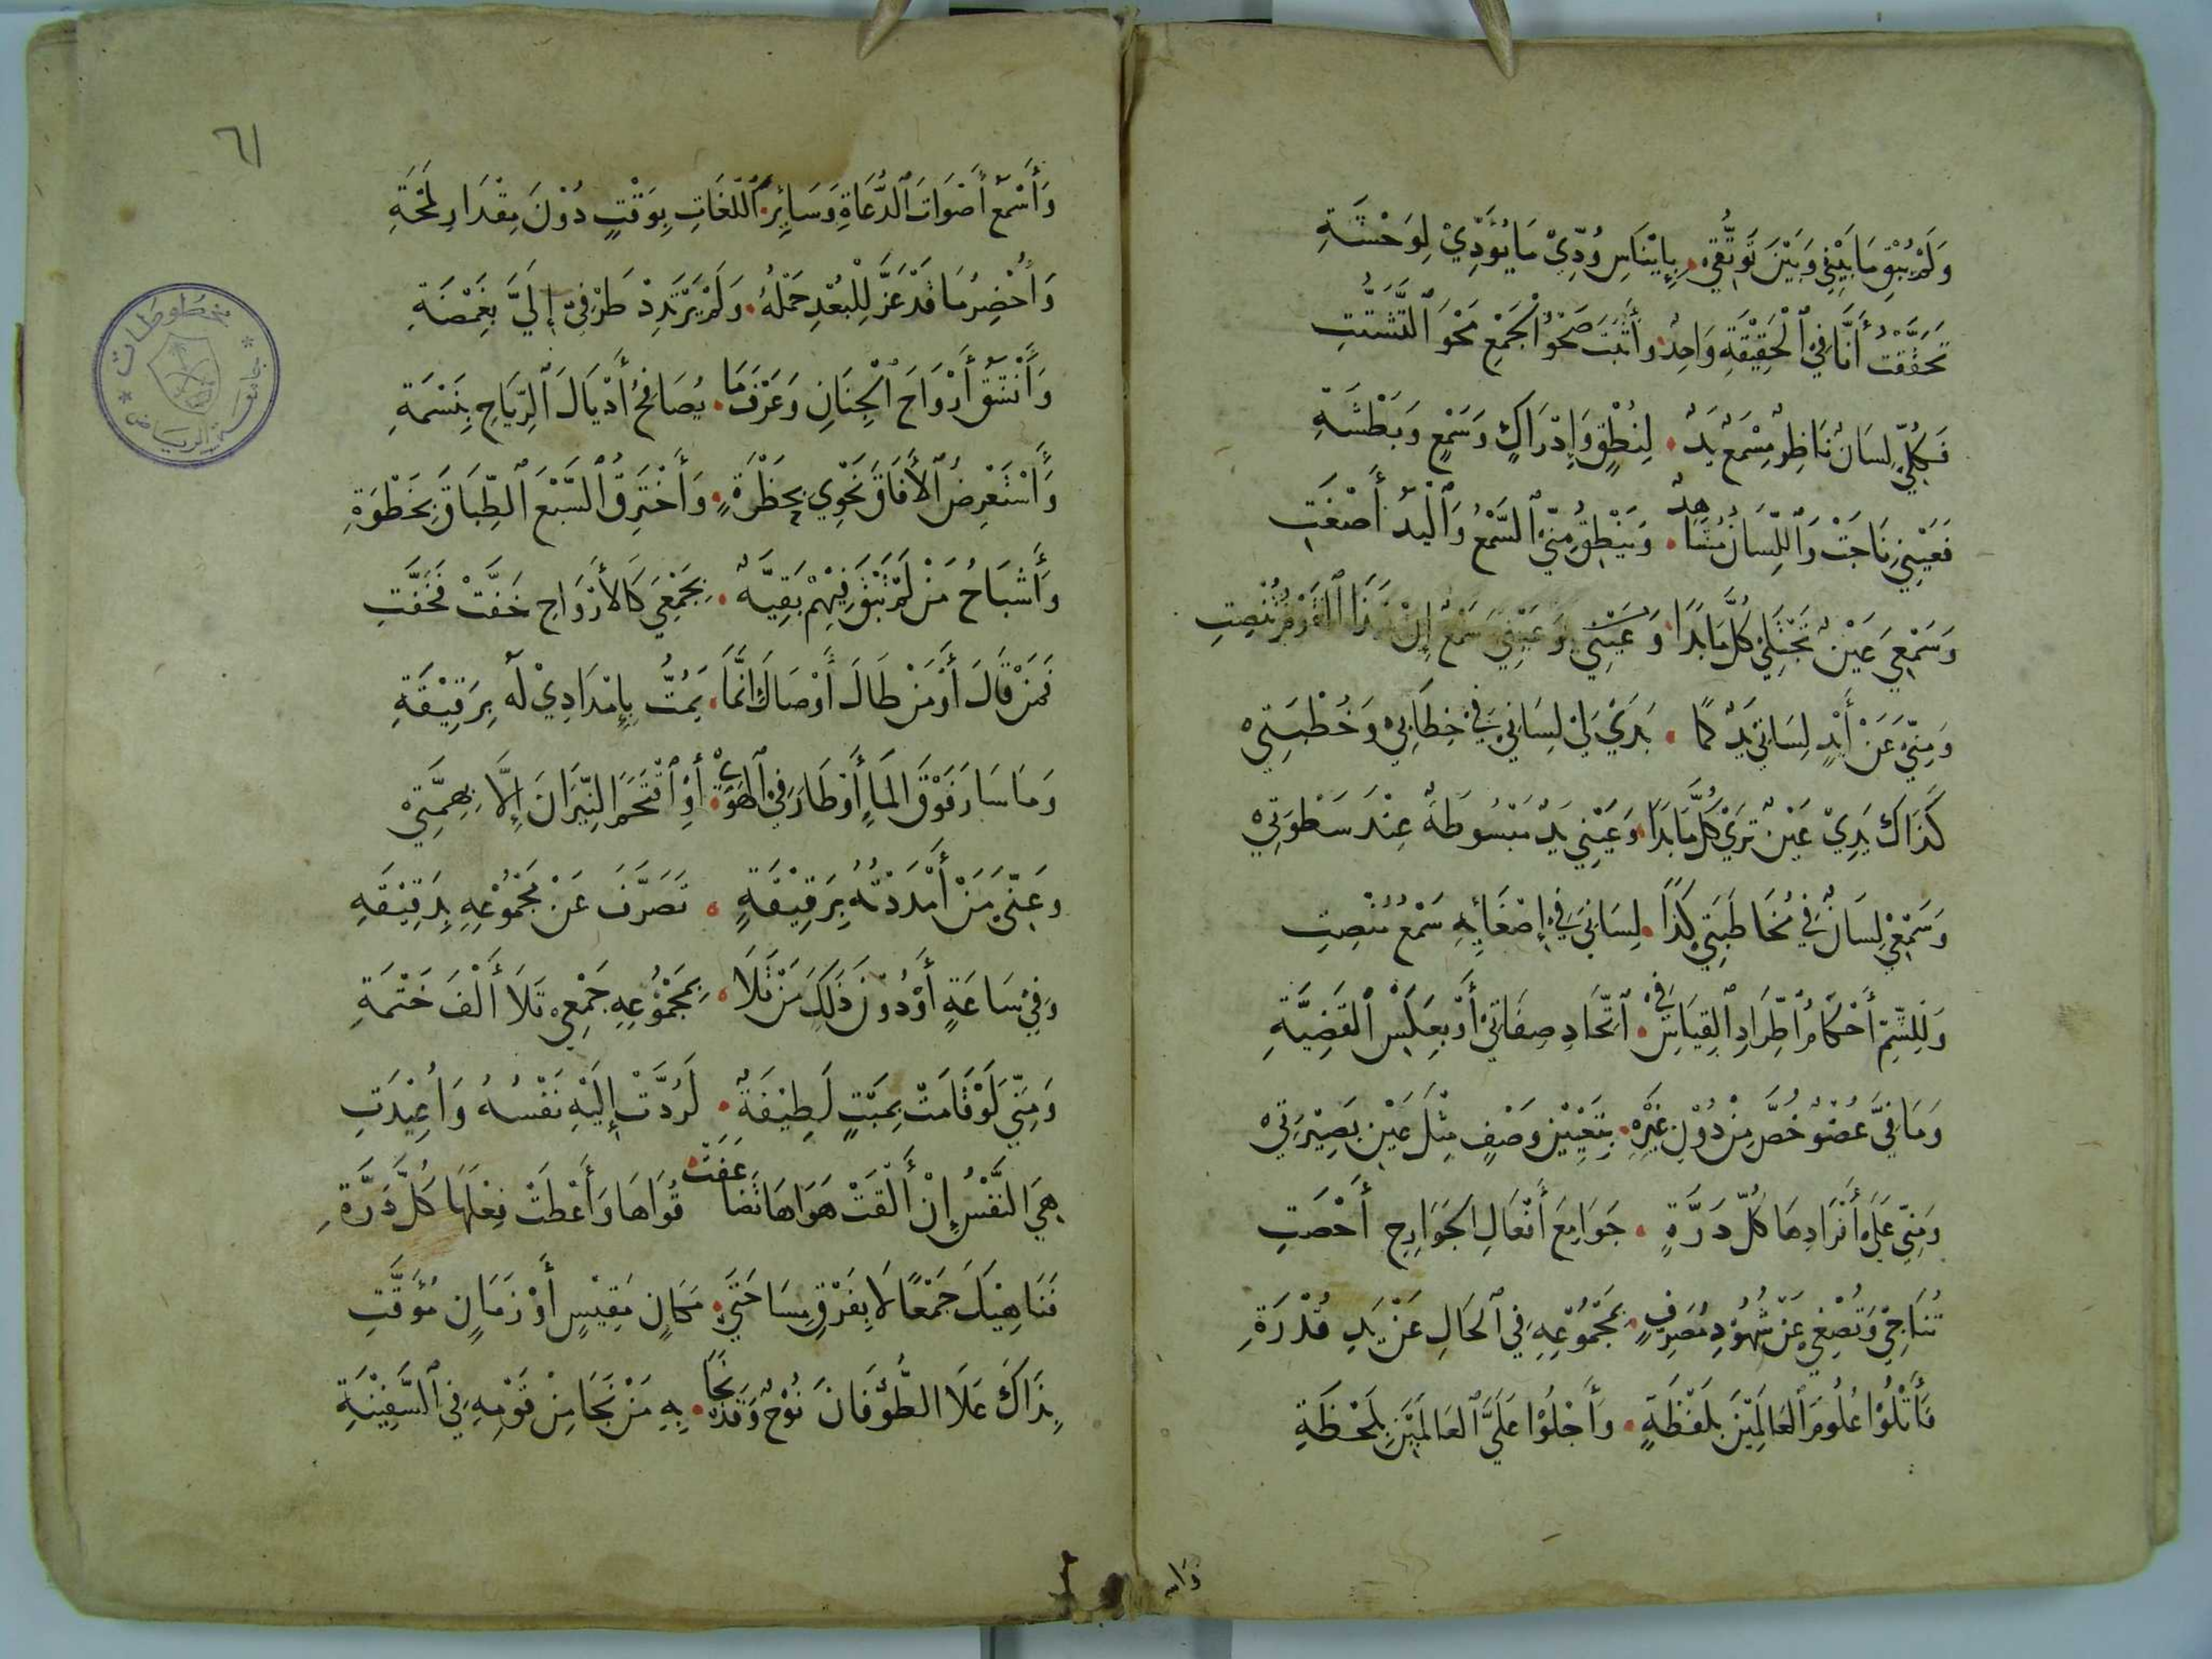 وَلَمْ يُبْقِ مَا بَيْنِي وَبَيْنَ تَوَثُّقِي بِإِيْنَاسِ وُدِّيْ مَا يُؤَدِّيْ لِوَحْشَةِ
تَحَقَّقْتُ أَنَّا فِيْ ٱلْحَقِيْقَةِ وَاحِدٌ وَأَثْبَتَ صَحْوُ ٱلْجَمْعِ مَحْوَ ٱلتَّشَتُّتِ
فَكُلِّيْ لِسَانٌ نَاظِرٌ مِسْمَعٌ يَدٌ لِنُطْقٍ وَإِدْرَاكٍ وَسَمْعٍ وَبَطْشَةِ
فَعَيْنِيْ نَاجَتْ وَٱللِّسَانُ مُشَاهِدٌ وَيَنْطِقُ مِنِّيْ ٱلسَّمْعُ وَٱلْيَدُ أَصْغَتِ
وَسَمْعِيَ عَيْنٌ تَجْتَلِيْ كُلَّ مَا بَدَا وَعَيْنِيْ وَعَيْنِيَ سَمْعٌ إِنْ شَدَا ٱلْقَوْمُ تُنْصِتِ
وَمِنِّيَ عَنْ أَيْدٍ لِسَانِيْ يَدٌ كَمَا يَدَيْ لِيْ لِسَانِيْ فِيْ خِطَابِيْ وَخُطْبَتِيْ
كَذَاكَ يَدِيْ عَيْنٌ تَرَيْ كُلَّ مَا بَدَا وَعَيْنِيْ يَدٌ مَبْسُوطَةٌ عِنْدَ سَطْوَتِيْ
وَسَمْعِيْ لِسَانٌ فِيْ مُخَاطَبَتِيْ كَذَا لِسَانِيَ فِيْ إِصْغَائِهِ سَمْعُ مُنْصِتِ
وَلِلشَّمِّ أَحْكَامُ ٱطِّرَادِ ٱلْقِيَاسِ فِيْ ٱتِّحَادِ صِفَاتِيْ أَوْ بِعَكْسِ ٱلْقَضِيَّةِ
وَمَا فِيَّ عُضْوٌ خُصَّ مِنْ دُوْنِ غَيْرِهِ بِتَعْيِيْنِ وَصْفٍ مِثْلَ عَيْنِ بَصِيْرَتِيْ
وَمِنِّيْ عَلَى أَفْرَادِهَا كُلُّ ذَرَّةٍ جَوَامِعَ أَفْعَالِ الْجَوَارِحِ أَحْصَتِ
تُنَاجِيْ وَتُصْغِيْ عَنْ شُهُوْدِ مُصَرِّفٍ بِمَجْمُوْعِهِ فِي ٱلْحَالِ عَنْ يَدِ قُدْرَةِ
فَأَتْلُوْا عُلُومَ ٱلْعَالِمِيْنَ بِلَفْظَةٍ وَأَجْلُوْا عَلَيَّ ٱلْعَالَمِيْنَ بِلَحْظَةِ
وَاسـ
٦١
وَأَسْمَعُ أَصْوَاتَ ٱلدُّعَاةِ وَسَايِرَ ٱللُّغَاتِ بِوَقْتٍ دُوْنَ مِقْدَارِ لَمْحَةِ
وَأُحْضِرُ مَا قَدْ عَزَّ لِلْبُعْدِ حَمْلُهُ وَلَمْ يَرْتَدِدْ طَرْفِيْ إِلَيَّ بِغَمْضَةِ
وَأَنْشَقُ أَرْوَاحَ ٱلْجِنَانِ وَعَرْفَ مَا يُصَافِحُ أَذْيَالَ ٱلرِّيَاحِ بِنَسْمَةِ
وَأَسْتَعْرِضُ ٱلْأَفَاقَ نَحْوِي بِخَطْرَةٍ وَأَخْتَرِقُ ٱلسَّبْعَ ٱلطِّبَاقَ بِخَطْوَةِ
وَأَشْبَاحُ مَنْ لَمْ تَبْقَ فِيْهِمْ بَقِيَّةٌ بِجَمْعِيَ كَالْأَرْوَاحِ خَفَّتْ فَخَفَّتِ
فَمَنْ قَالَ أَوْ مَنْ طَالَ أَوْ صَالَ إِنَّمَا يَمُتُّ بِإِمْدَادِيْ لَهُ بِرَقِيْقَةِ
وَمَا سَارَ فَوْقَ الْمَاءِ أَوْ طَارَ فِي ٱلْهَوَيْ أَوِ ٱقْتَحَمَ النِّيْرَانَ إِلَّا بِهِمَّتِيْ
وَعَنِّيَ مَنْ أَمْدَدْتُهُ بِرَقِيْقَةٍ تَصَرَّفَ عَنْ مَجْمُوْعِهِ بِدَقِيْقَةِ
وَفِيْ سَاعَةٍ أَوْ دُوْنَ ذَلِكَ مَنْ تَلَا بِمَجْمُوْعِهِ جَمْعِيْ تَلَا أَلْفَ خَتْمَةِ
وَمِنِّيَ لَوْ قَامَتْ بِمَيْتٍ لَطِيْفَةٌ لَرُدَّتْ إِلَيْهِ نَفْسُهُ وَأُعِيْدَتِ
هِيَ النَّفْسُ إِنْ أَلْقَتْ هَوَاهَا تَضَاعَفَتْ قُوَاهَا وَأَعْطَتْ فِعْلَهَا كُلَّ ذَرَّةِ
فَنَاهِيْكَ جَمْعًا لَا بِفَرْقِ مِسَاحَتَيْ مَكَانٍ مَقِيْسٍ أَوْ زَمَانٍ مُؤَقَّتِ
بِذَاكَ عَلَا الطُّوْفَانَ نُوْحٌ وَقَدْ نَجَا بِهِ مَنْ نَجَا مِنْ قَوْمِهِ فِي ٱلسَّفِيْنَةِ
جامعة الرياض
مخطوطات